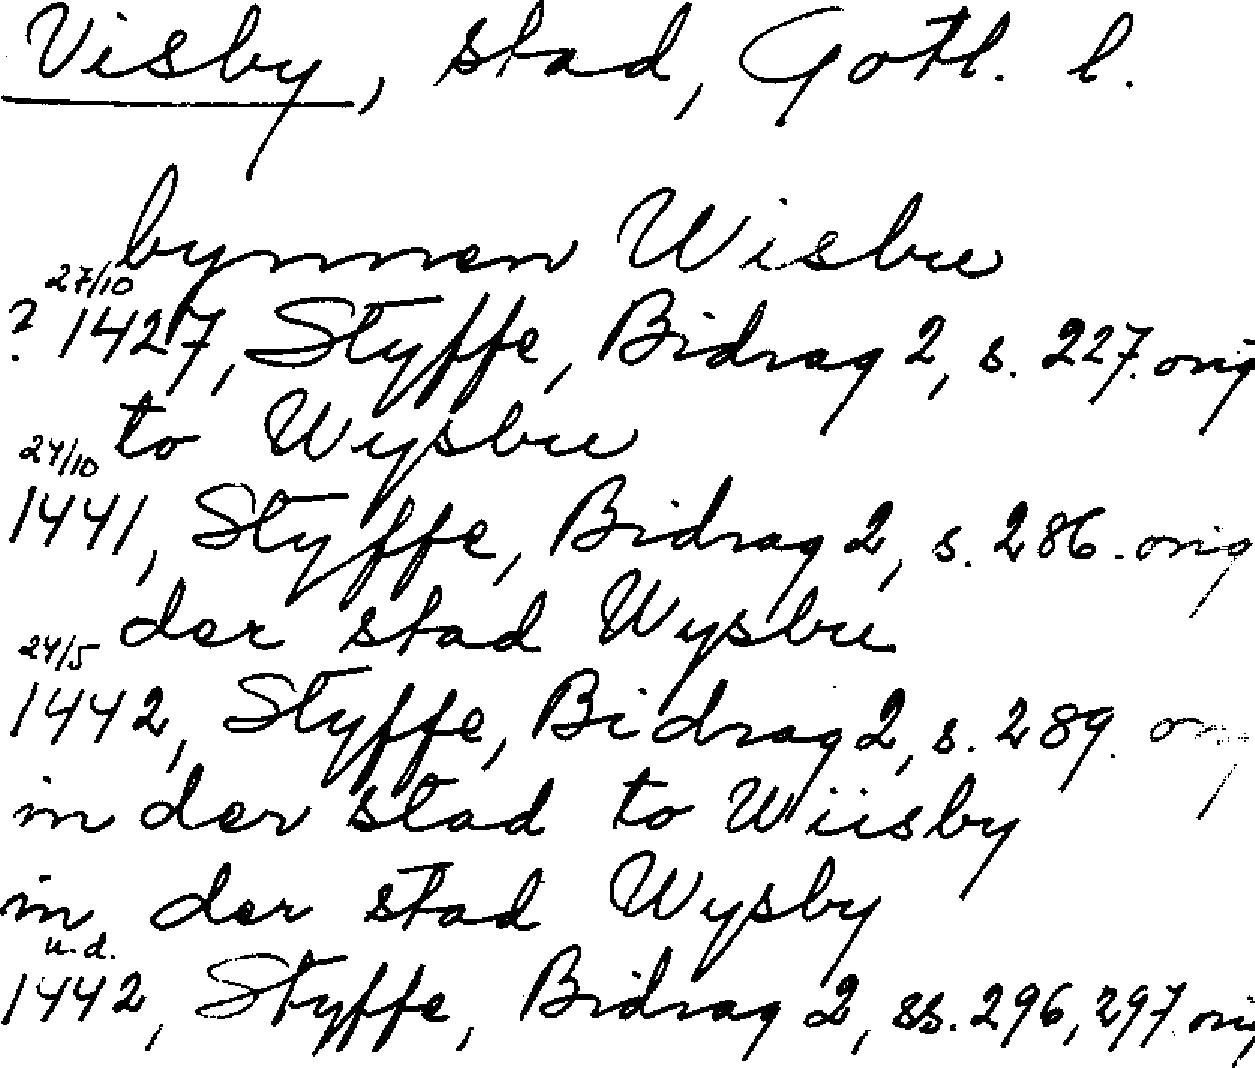 Visby, stad, Gotl. l.
bynnen Wisbu
27/10
? 1427, Styffe, Bidrag 2, s. 227. orig
to Wysbu
24/10
1441, Styffe, Bidrag 2, s. 286. orig
der stad Wysbu
24/5
1442, Styffe, Bidrag 2, s. 289. orig
in der stad to Wiisby
in der stad Wysby
u. d.
1442, Styffe, Bidrag 2, ss. 296, 297. orig